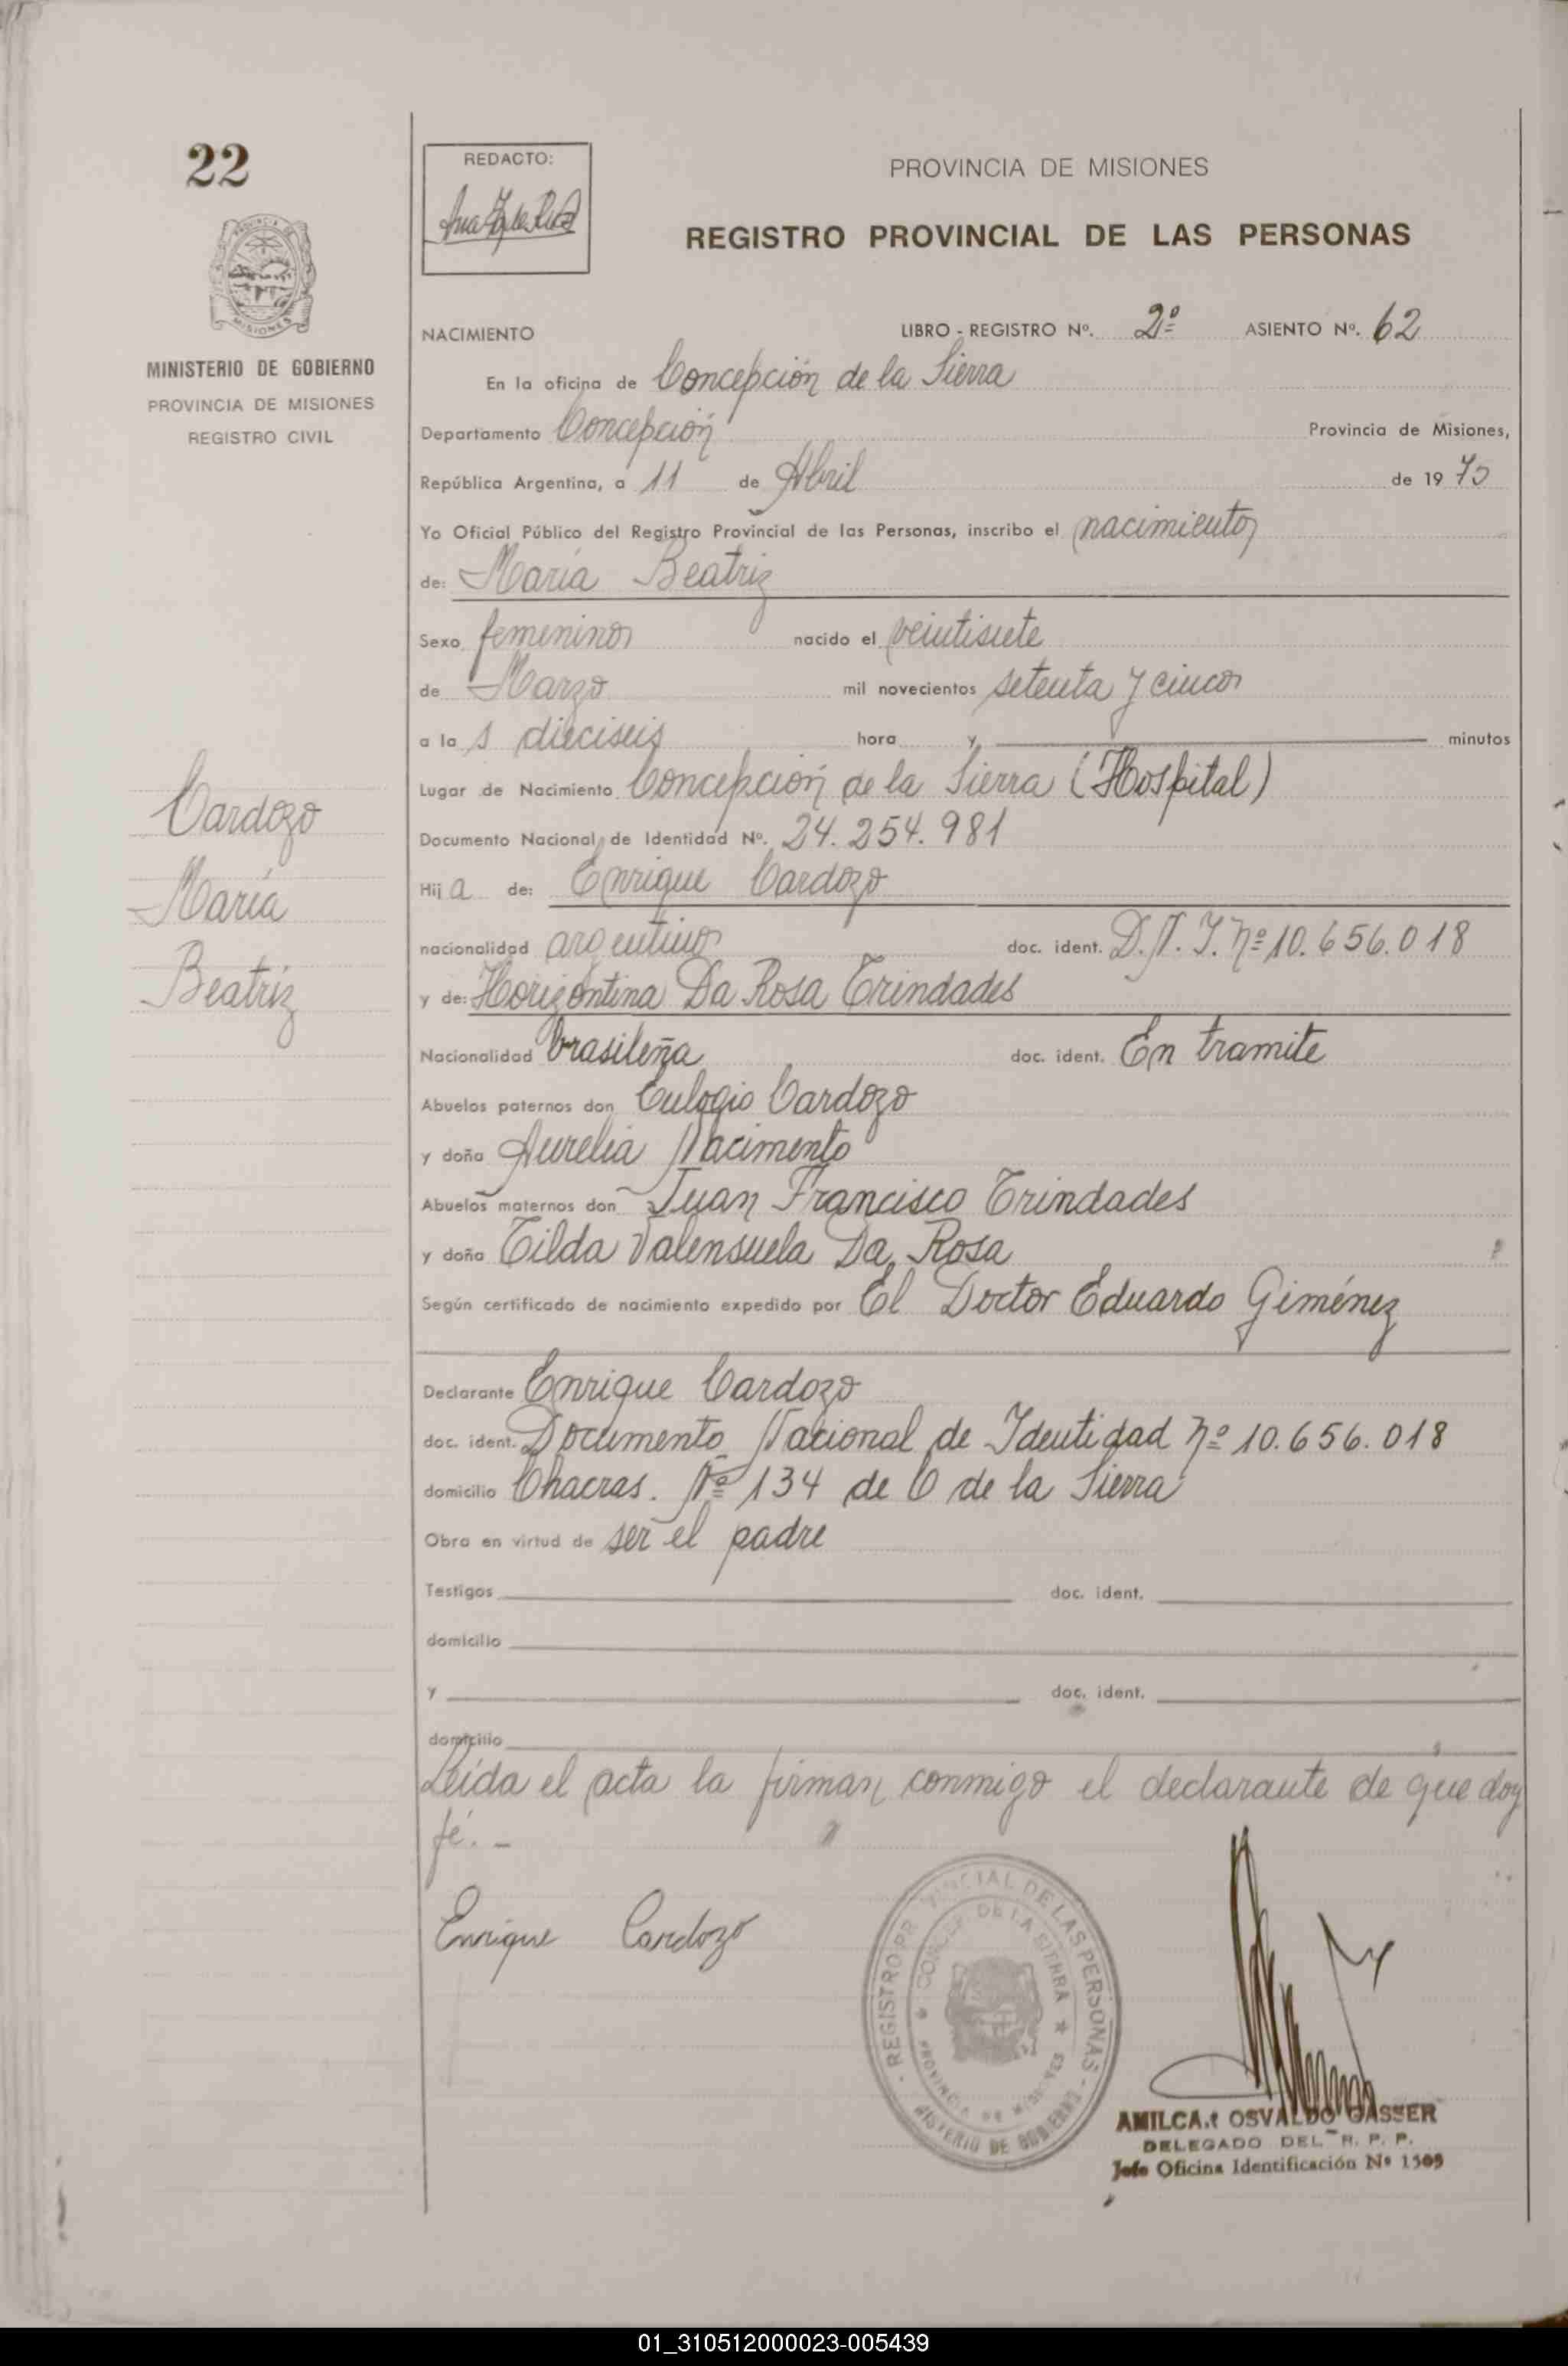 22
REDACTO:
PROVINCIA DE MISIONES
REGISTRO PROVINCIAL DE LAS PERSONAS
MISIONES
MINISTERIO DE GOBIERNO
PROVINCIA DE MISIONES
REGISTRO CIVIL
NACIMIENTO LIBRO - REGISTRO Nº. 2º ASIENTO Nº. 62
En la oficina de Concepción de la Sierra
Departamento Concepción Provincia de Misiones,
República Argentina, a 11 de Abril de 1975
Yo Oficial Público del Registro Provincial de las Personas, inscribo el nacimiento
de: María Beatriz
Sexo femenino nacido el veintisiete
de Marzo mil novecientos setenta y cinco
a la s dieciseis hora y minutos
Lugar de Nacimiento Concepción de la Sierra (Hospital)
Documento Nacional de Identidad Nº. 24.254.981
Hij a de: Enrique Cardozo
nacionalidad argentino doc. ident. D.N.I. Nº 10.656.018
y de: Horizontina Da Rosa Trindades
Nacionalidad brasileña doc. ident. En tramite
Abuelos paternos don Eulogio Cardozo
y doña Aurelia Nacimento
Abuelos maternos don Juan Francisco Trindades
y doña Tilda Valensuela Da Rosa
Según certificado de nacimiento expedido por El Doctor Eduardo Giménez
Cardozo
María
Beatriz
Declarante Enrique Cardozo
doc. ident. Documento Nacional de Identidad Nº 10.656.018
domicilio Chacras. Nº 134 de C de la Sierra
Obra en virtud de ser el padre
Testigos doc. ident.
domicilio
y doc. ident.
domicilio
Leída el acta la firman conmigo el declarante de que doy
fé. -
Enrique Cardozo
REGISTRO PROVINCIAL DE LAS PERSONAS
MINISTERIO DE GOBIERNO
CONCEP. DE LA SIERRA
PROVINCIA DE MISIONES
AMILCAR OSVALDO GASSER
DELEGADO DEL R. P. P.
Jefe Oficina Identificación Nº 1509
01_310512000023-005439